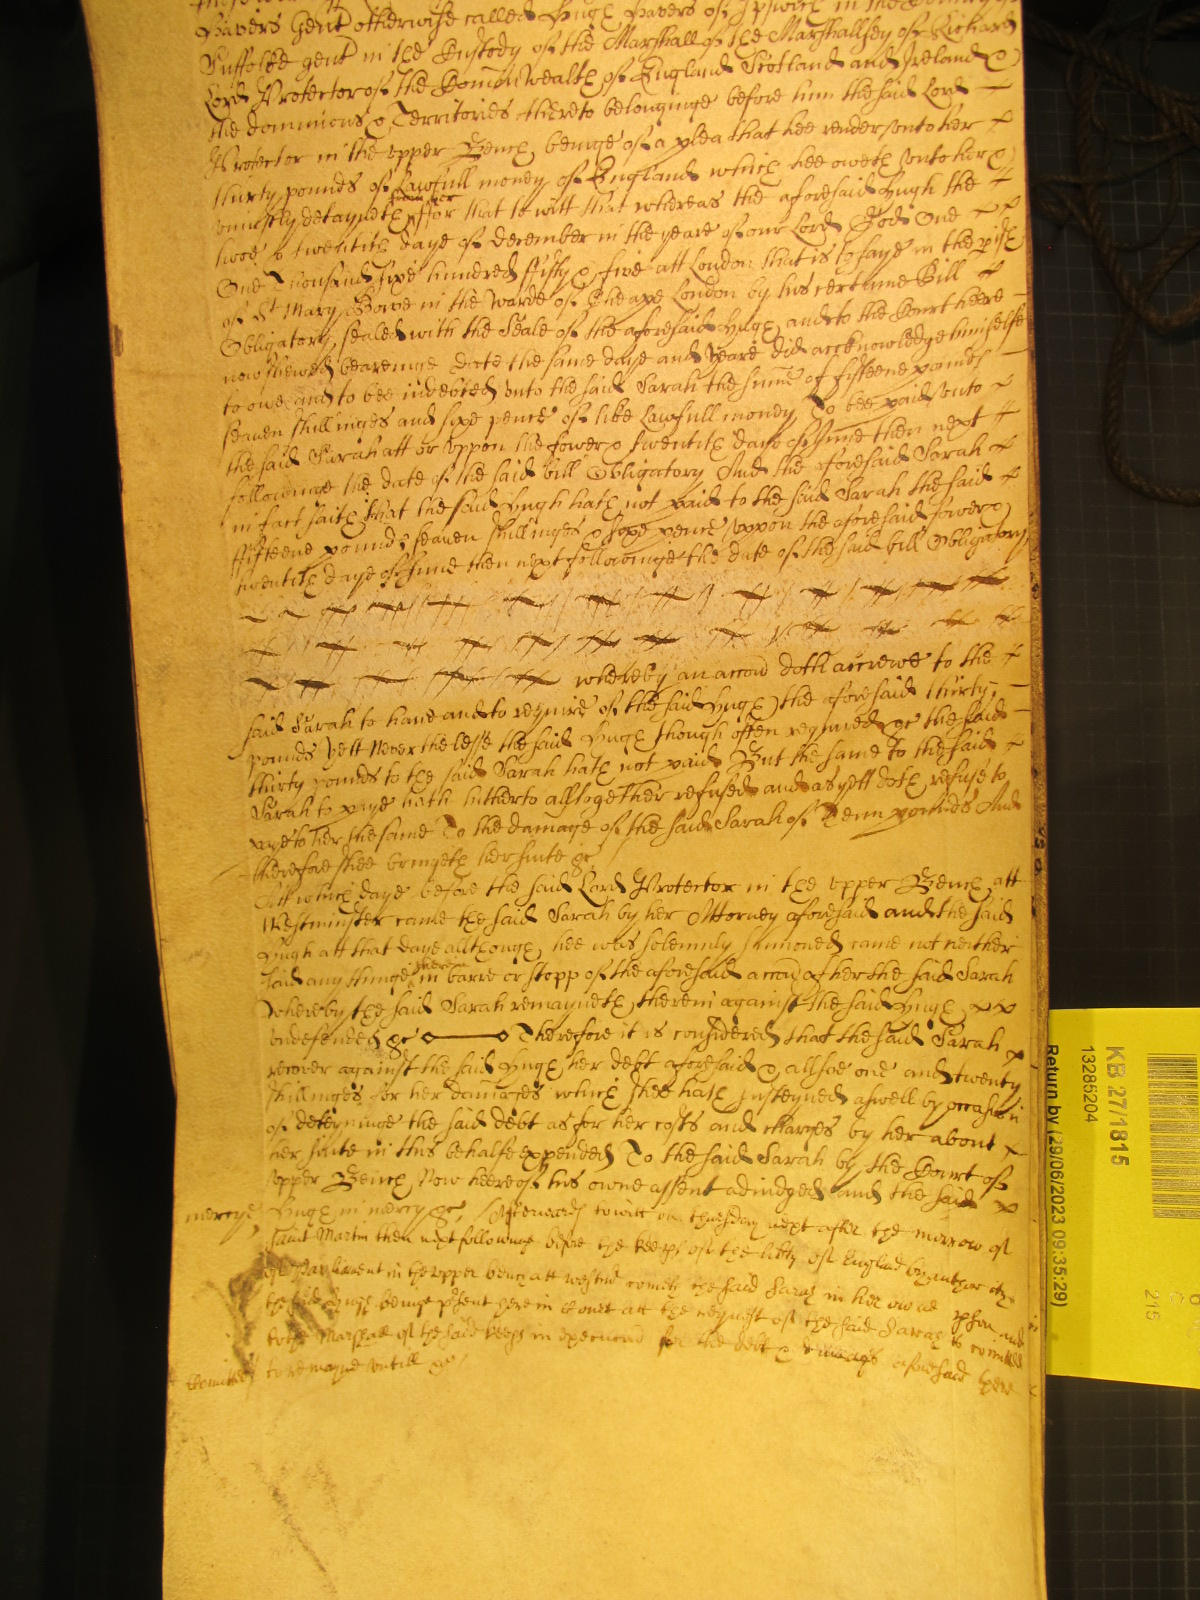 Pavers gent otherwise called Hugh Pavers of Ipswich in the County of
Suffolke gent in the Custody of the Marshall of the Marshallsey of Richard
Lord Protector of the Comon Wealth of England Scotland and Ireland &
the dominions & Territories thereto belonginge before him the said Lord
Protector in the upper Bench beinge of a plea that hee render unto her
thirty pounds of Lawfull money of England which hee oweth unto her &
uniustly detayneth from her ffor that to witt that whereas the aforesaid Hugh the
fower & twentith daye of december in the yeare of our Lord God One
One Thousand sixe hundred ffifty & five att London that is to saye in the pish
of St Mary Bowe in the Warde of Cheape London by his certaine Bill
Obligatory sealed with the Seale of the aforesaid Hugh and to the Court heere
now shewed beareinge date the same daye and yeare did acknowledge himselfe
to owe and to bee indebted unto the said Sarah the sume of fifteene pounds
seaven shillinges and sixe pence of like Lawfull money To bee paid unto
the said Sarah att or uppon the fower & twentith daye of June then next
followinge the date of the said bill Obligatory And the aforesaid Sarah
in fact saith that the said Hugh hath not paid to the said Sarah the said
ffifteene pounds seaven shillinges & sixe pence uppon the aforesaid fower &
twentith daye of June then next followinge the date of the said bill Obligatory
whereby an accon doth accrewe to the
said Sarah to have and to require of the said Hugh the aforesaid thirty
pounds yett Neverthelesse the said Hugh though often required &c the said
thirty pounds to the said Sarah hath not paid But the same to the said
Sarah to paye hath hitherto alltogether refused and as yett doth refuse to
paye to her the same To the damage of the said Sarah of Tenn pounds And
therefore shee bringeth her suite &c
Att which daye before the said Lord Protector in the upper Bench att
Westminster came the said Sarah by her Attorney aforesaid and the said
Hugh att that daye allthough hee was solemnly sumoned came not neither
said any thinge therein in barre or stopp of the aforesaid accon of her the said Sarah
Whereby the said Sarah remayneth therein against the said Hugh
undefended &c Therefore it is considered that the said Sarah
recover against the said Hugh her debt aforesaid & allsoe one and twenty
shillinges for her damages which shee hath susteyned aswell by occasion
of deteyninge the said debt as for her costs and charges by her about
her suite in this behalfe expended To the said Sarah by the Court of
upper Bench Now heere of his owne assent adiudged And the said
mercye Hugh in mercy &c Afterwards to witt on thursday next after the morrow of
Saint Martin then next followinge before the keeps of the libty of England by author ity
of Parliament in the upper bench att westmr cometh the said Sarah in her owne pson and
the said Hugh beinge psent here in Court att the request of the said Sarah is comitted
to the Marshall of the said keeps in execucon for the debt & damages aforesaid there
Comitted to remayne untill &c
KB 27/1815
13285204
Return by (29/06/2023 09:35:29)
215